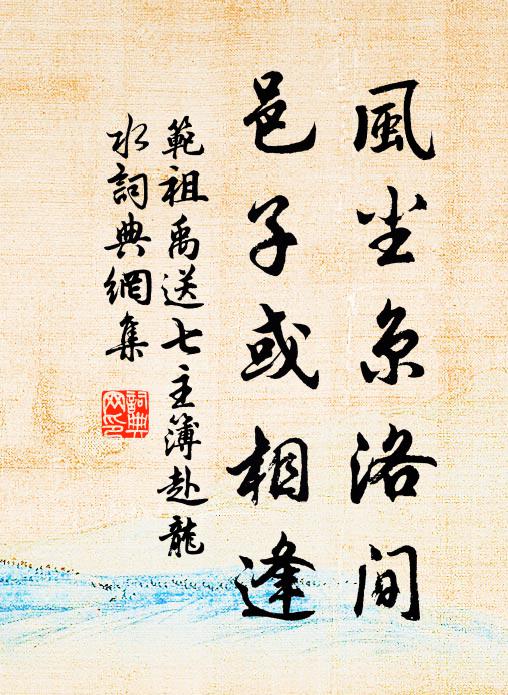 風尘京洛间
邑子或相逢
範祖禹送七主簿赴龍
水詞典網集
詞典网印